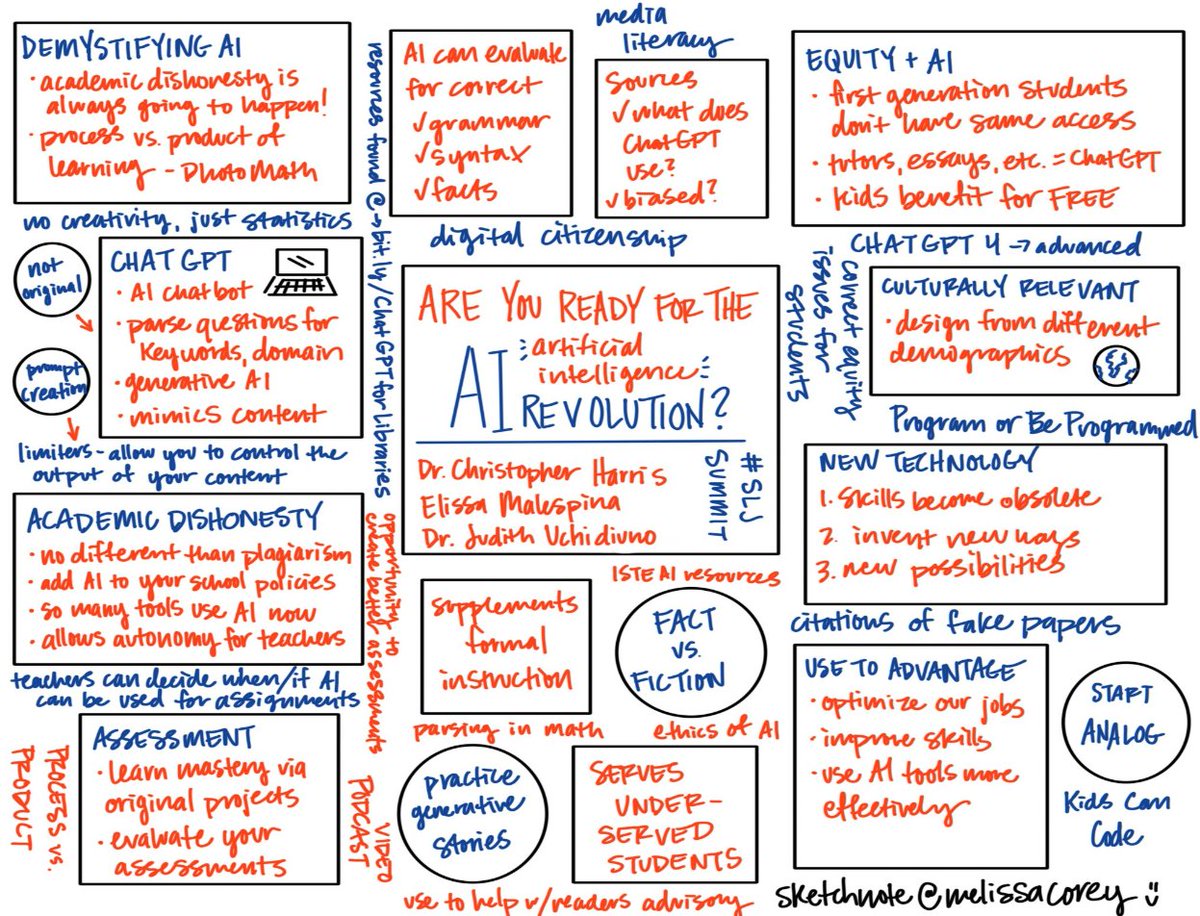 DEMYSTIFYING AI
• academic dishonesty is
always going to happen!
• process vs. product of
learning - PhotoMath
no creativity, just statistics
not
original
prompt
creation
CHAT GPT
• AI chatbot
• parse questions for
keywords, domain
• generative AI
• mimics content
limiters - allow you to control the
output of your content
ACADEMIC DISHONESTY
• no different than plagiarism
• add AI to your school policies
• so many tools use AI now
• allows autonomy for teachers
teachers can decide when/if AI
can be used for assignments
PROCESS vs.
PRODUCT
ASSESSMENT
• learn mastery via
original projects
• evaluate your
assessments
resources found @→bit.ly/ChatGPTforLibraries
opportunity to
create better assessments
VIDEO
PODCAST
AI can evaluate
for correct
✓grammar
✓syntax
✓facts
media
literacy
Sources
✓what does
ChatGPT
use?
✓biased?
digital citizenship
ARE YOU READY FOR THE
AI artificial
intelligence
REVOLUTION?
Dr. Christopher Harris
Elissa Malespina
Dr. Judith Uchidiuno
#SLJ
SUMMIT
supplements
formal
instruction
ISTE AI resources
FACT
vs.
FICTION
parsing in math
ethics of AI
practice
generative
stories
SERVES
UNDER-
SERVED
STUDENTS
use to help w/readers advisory
EQUITY + AI
• first generation students
don't have same access
• tutors, essays, etc. = ChatGPT
• kids benefit for FREE
CHATGPT 4 → advanced
correct equity
issues for
students
CULTURALLY RELEVANT
• design from different
demographics
Program or Be Programmed
NEW TECHNOLOGY
1. skills become obsolete
2. invent new ways
3. new possibilities
citations of fake papers
USE TO ADVANTAGE
• optimize our jobs
• improve skills
• use AI tools more
effectively
START
ANALOG
Kids Can
Code
sketchnote @melissacorey